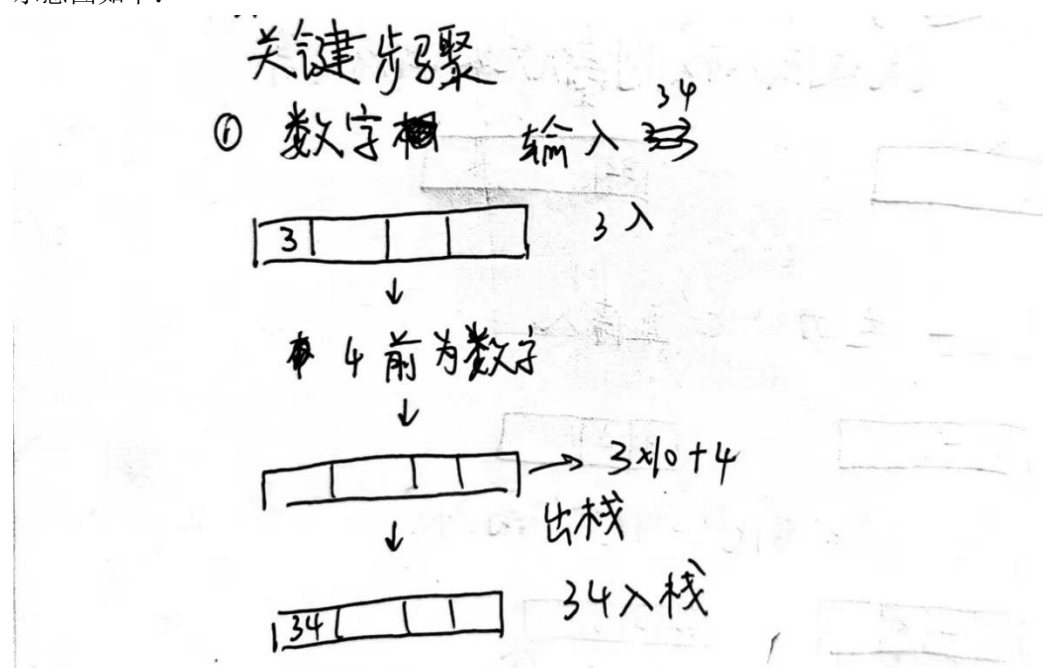 关键步骤
① 数字 输入 34
3 3入
↓
4前为数字
↓
→ 3×10+4
出栈
↓
34 34入栈